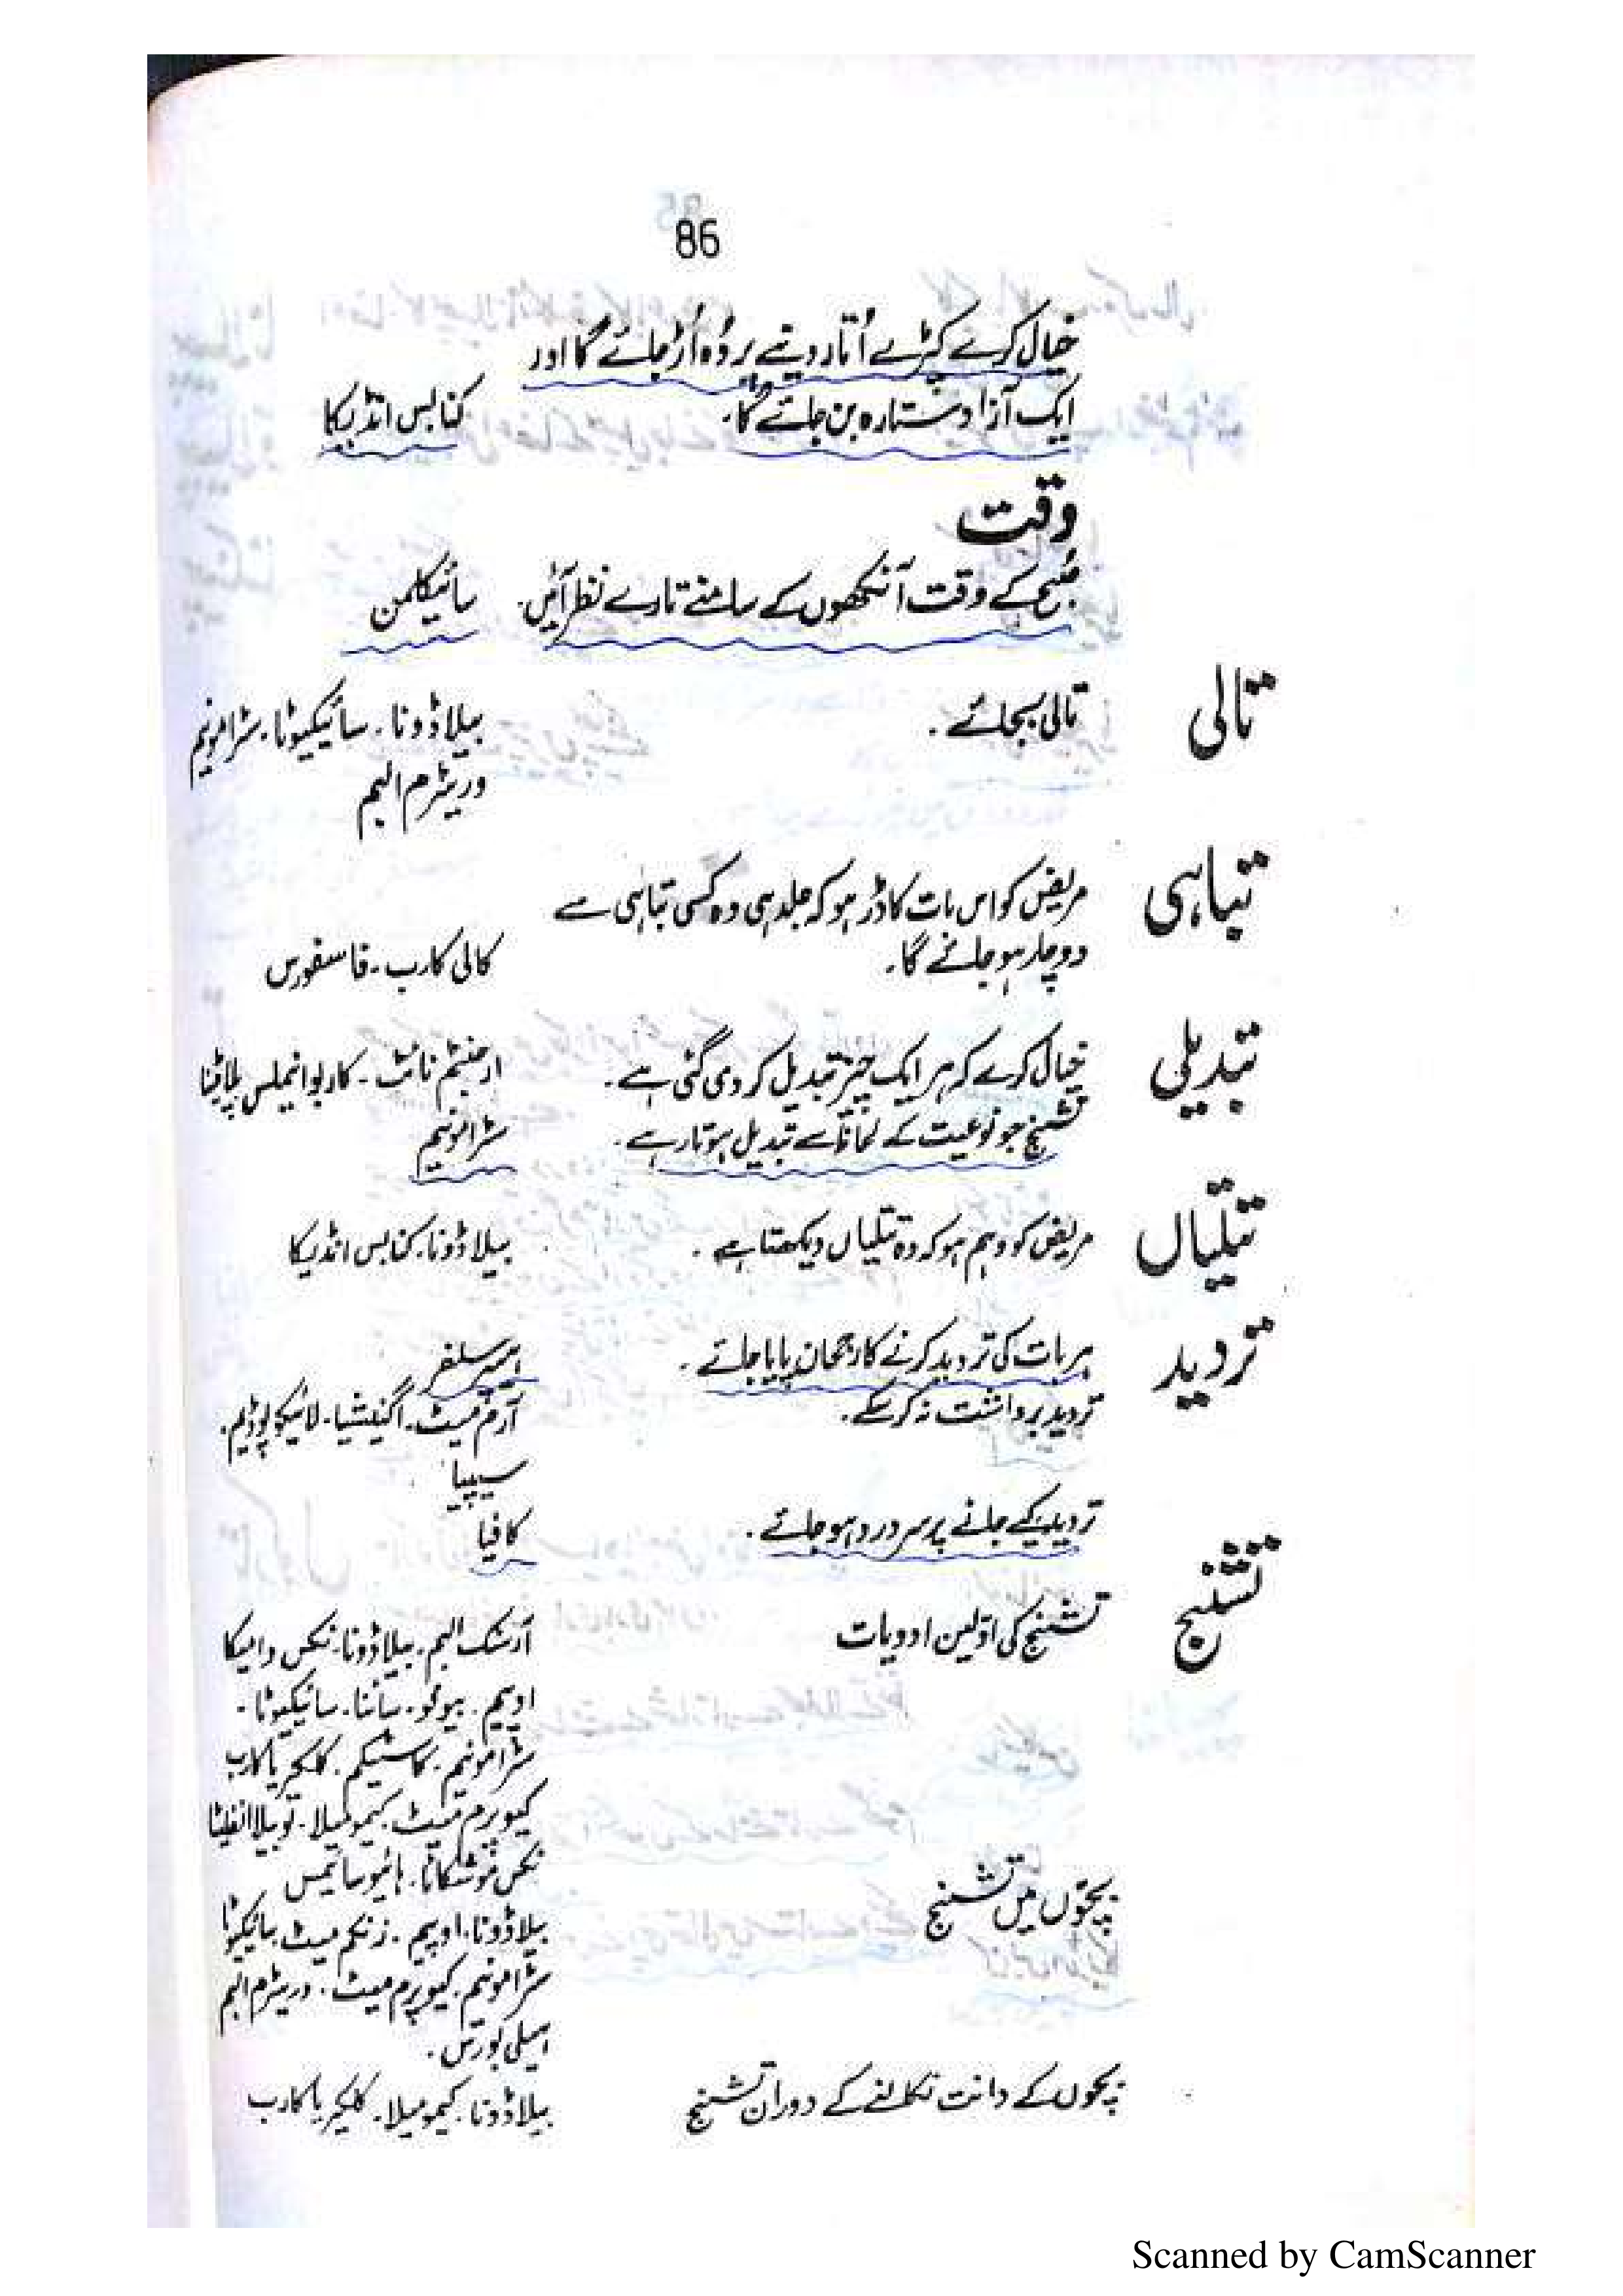 86
خیال کرے کپڑے اُتار دینے پر وُہ اُڑ جائے گا اور
ایک آزاد ستارہ بن جائے گا۔ کنابس انڈیکا
وقت
صُبح کے وقت آنکھوں کے سامنے تارے نظر آئیں۔ سائیکلمن
تالی
تالی بجائے۔ بیلاڈونا۔ سائیکیوٹا۔ سٹرامونیم
وریٹرم البم
تباہی
مریض کو اس بات کا ڈر ہو کہ جلد ہی وہ کسی تباہی سے
دوچار ہو جائے گا۔ کالی کارب۔ فاسفورس
تبدیلی
خیال کرے کہ ہر ایک چیز تبدیل کر دی گئی ہے۔ ارجنٹم نائٹ۔ کاربو انیملس پلاٹینا
تشنج جو نوعیت کے لحاظ سے تبدیل ہوتا رہے۔ سٹرامونیم
تتلیاں
مریض کو وہم ہو کہ وہ تتلیاں دیکھتا ہے۔ بیلاڈونا۔ کنابس انڈیکا
تردید
ہر بات کی تردید کرنے کا رجحان پایا جائے۔ ہیپر سلفر
تردید برداشت نہ کر سکے۔ آرم میٹ۔ اگنیشیا۔ لائیکوپوڈیم۔
سیپیا
تردید کیے جانے پر سر درد ہو جائے۔ کافیا
تشنج
تشنج کی اوّلین ادویات آرسنک البم۔ بیلاڈونا۔ نکس وامیکا
اوپیم۔ بیوفو۔ سائنا۔ سائیکیوٹا۔
سٹرامونیم۔ کاسٹیکم۔ کلکیریا کارب
کیوپرم میٹ۔ کیمومیلا۔ لوبیلا انفلیٹا
نکس موشکاٹا۔ ہائیوسائیمس
بچّوں میں تشنج
بیلاڈونا۔ اوپیم۔ زنکم میٹ۔ سائیکوٹا
سٹرامونیم۔ کیوپرم میٹ۔ وریٹرم البم
ہیلی بورس۔
بچوں کے دانت نکالنے کے دوران تشنج بیلاڈونا۔ کیمومیلا۔ کلکیریا کارب
Scanned by CamScanner